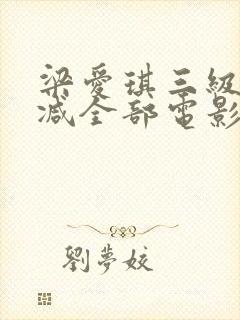 梁愛琪三級
減全部電影
劉夢姣